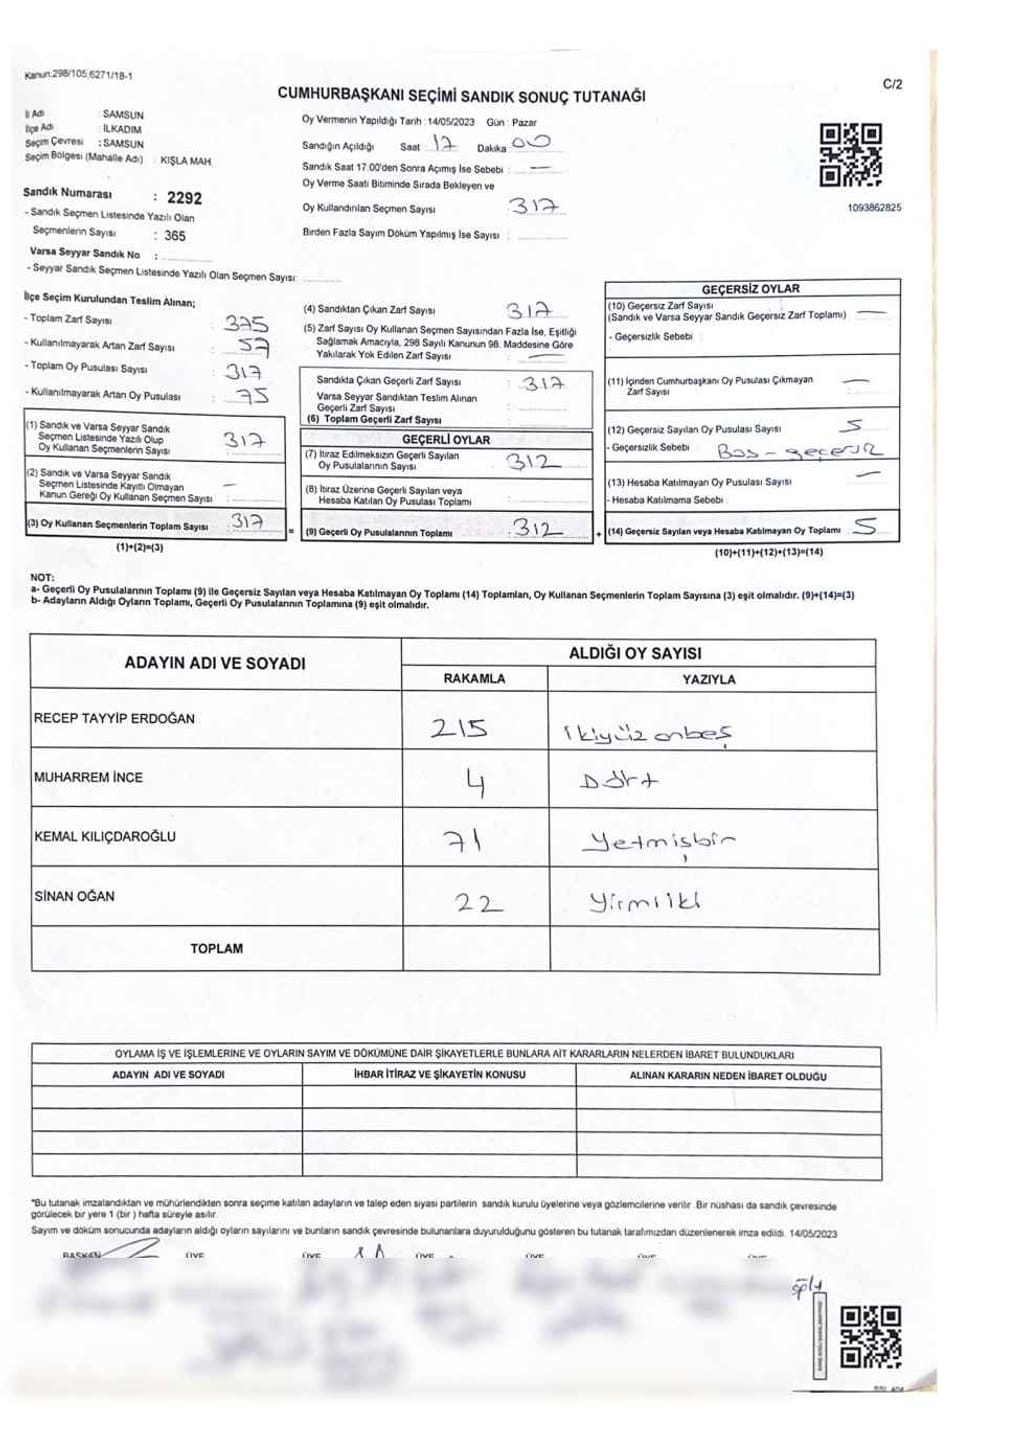 Kanun:298/105;6271/18-1
C/2
CUMHURBAŞKANI SEÇİMİ SANDIK SONUÇ TUTANAĞI
İl Adı : SAMSUN
İlçe Adı : İLKADIM
Seçim Çevresi : SAMSUN
Seçim Bölgesi (Mahalle Adı) : KIŞLA MAH.
Sandık Numarası : 2292
- Sandık Seçmen Listesinde Yazılı Olan
Seçmenlerin Sayısı : 365
Varsa Seyyar Sandık No :
- Seyyar Sandık Seçmen Listesinde Yazılı Olan Seçmen Sayısı:
Oy Vermenin Yapıldığı Tarih : 14/05/2023 Gün : Pazar
Sandığın Açıldığı Saat 17 Dakika 00
Sandık Saat 17:00'den Sonra Açımış İse Sebebi : —
Oy Verme Saati Bitiminde Sırada Bekleyen ve
Oy Kullandırılan Seçmen Sayısı 317
Birden Fazla Sayım Döküm Yapılmış İse Sayısı :
1093862825
İlçe Seçim Kurulundan Teslim Alınan;
- Toplam Zarf Sayısı : 375
- Kullanılmayarak Artan Zarf Sayısı : 57
- Toplam Oy Pusulası Sayısı : 317
- Kullanılmayarak Artan Oy Pusulası : 75
(1) Sandık ve Varsa Seyyar Sandık
Seçmen Listesinde Yazılı Olup
Oy Kullanan Seçmenlerin Sayısı : 317
(2) Sandık ve Varsa Seyyar Sandık
Seçmen Listesinde Kayıtlı Olmayan
Kanun Gereği Oy Kullanan Seçmen Sayısı : —
(3) Oy Kullanan Seçmenlerin Toplam Sayısı : 317
(1)+(2)=(3)
(4) Sandıktan Çıkan Zarf Sayısı : 317
(5) Zarf Sayısı Oy Kullanan Seçmen Sayısından Fazla İse, Eşitliği
Sağlamak Amacıyla, 298 Sayılı Kanunun 98. Maddesine Göre
Yakılarak Yok Edilen Zarf Sayısı : —
Sandıkta Çıkan Geçerli Zarf Sayısı : 317
Varsa Seyyar Sandıktan Teslim Alınan
Geçerli Zarf Sayısı :
(6) Toplam Geçerli Zarf Sayısı :
GEÇERLİ OYLAR
(7) İtiraz Edilmeksizin Geçerli Sayılan
Oy Pusulalarının Sayısı : 312
(8) İtiraz Üzerine Geçerli Sayılan veya
Hesaba Katılan Oy Pusulası Toplamı :
= (9) Geçerli Oy Pusulalarının Toplamı : 312
GEÇERSİZ OYLAR
(10) Geçersiz Zarf Sayısı
(Sandık ve Varsa Seyyar Sandık Geçersiz Zarf Toplamı) : —
- Geçersizlik Sebebi :
(11) İçinden Cumhurbaşkanı Oy Pusulası Çıkmayan
Zarf Sayısı : —
(12) Geçersiz Sayılan Oy Pusulası Sayısı : 5
- Geçersizlik Sebebi : Boş - geçersiz
(13) Hesaba Katılmayan Oy Pusulası Sayısı : —
- Hesaba Katılmama Sebebi :
+ (14) Geçersiz Sayılan veya Hesaba Katılmayan Oy Toplamı : 5
(10)+(11)+(12)+(13)=(14)
NOT:
a- Geçerli Oy Pusulalarının Toplamı (9) ile Geçersiz Sayılan veya Hesaba Katılmayan Oy Toplamı (14) Toplamları, Oy Kullanan Seçmenlerin Toplam Sayısına (3) eşit olmalıdır. (9)+(14)=(3)
b- Adayların Aldığı Oyların Toplamı, Geçerli Oy Pusulalarının Toplamına (9) eşit olmalıdır.
ADAYIN ADI VE SOYADI ALDIĞI OY SAYISI
RAKAMLA YAZIYLA
RECEP TAYYİP ERDOĞAN 215 ikiyüz onbeş
MUHARREM İNCE 4 Dört
KEMAL KILIÇDAROĞLU 71 yetmişbir
SİNAN OĞAN 22 yirmiiki
TOPLAM
OYLAMA İŞ VE İŞLEMLERİNE VE OYLARIN SAYIM VE DÖKÜMÜNE DAİR ŞİKAYETLERLE BUNLARA AİT KARARLARIN NELERDEN İBARET BULUNDUKLARI
ADAYIN ADI VE SOYADI İHBAR İTİRAZ VE ŞİKAYETİN KONUSU ALINAN KARARIN NEDEN İBARET OLDUĞU
*Bu tutanak imzalandıktan ve mühürlendikten sonra seçime katılan adayların ve talep eden siyasi partilerin sandık kurulu üyelerine veya gözlemcilerine verilir. Bir nüshası da sandık çevresinde
görülecek bir yere 1 (bir ) hafta süreyle asılır.
Sayım ve döküm sonucunda adayların aldığı oyların sayılarını ve bunların sandık çevresinde bulunanlara duyurulduğunu gösteren bu tutanak tarafımızdan düzenlenerek imza edildi. 14/05/2023
BAŞKAN ÜYE ÜYE ÜYE ÜYE ÜYE ÜYE